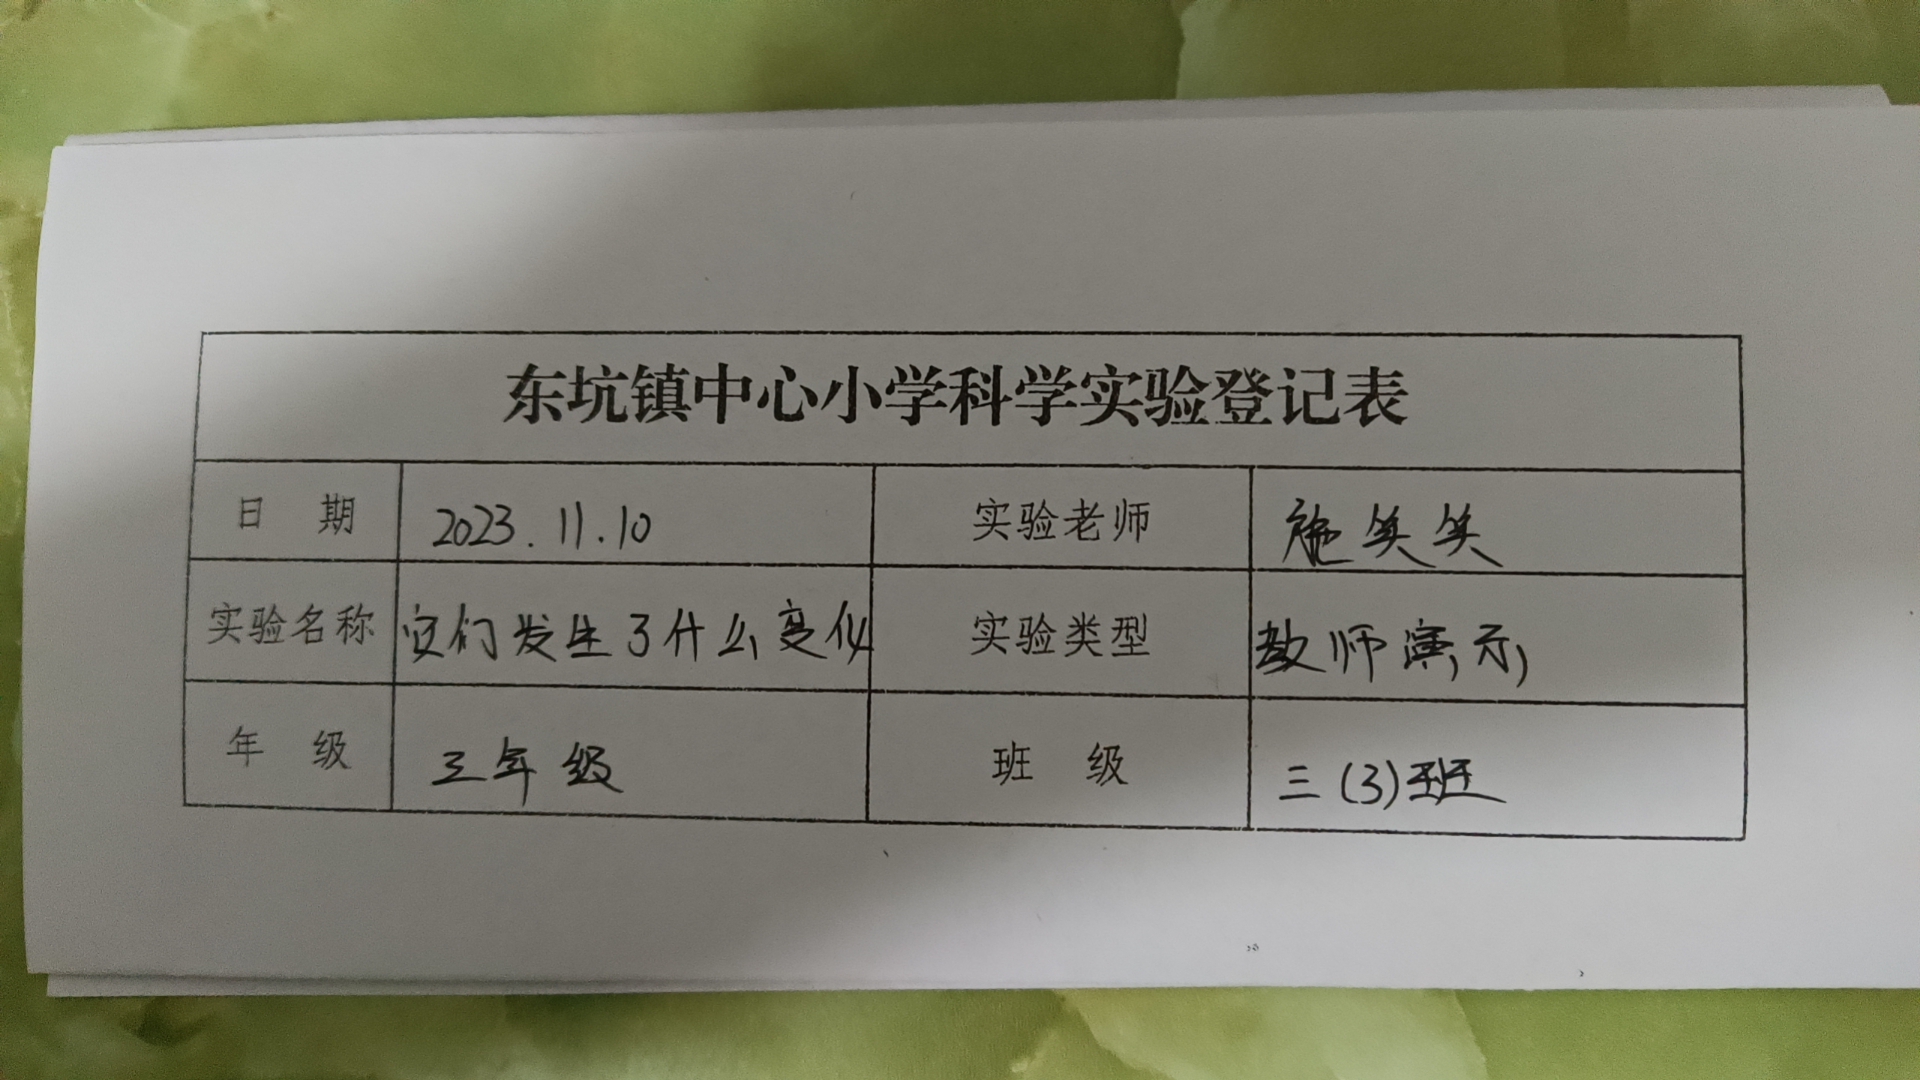 东坑镇中心小学科学实验登记表
日 期 2023.11.10 实验老师 施笑笑
实验名称 它们发生了什么变化 实验类型 教师演示
年 级 三年级 班 级 三(3)班